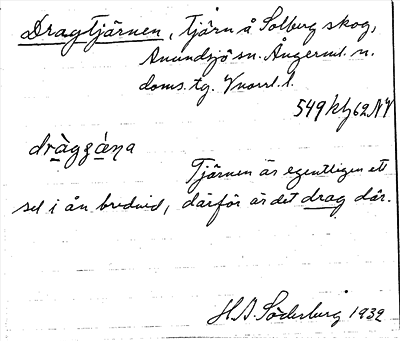 Dragtjärnen, tjärn å Solberg skog,
Anundsjö sn. Ångerml. n.
doms. tg. Vnorrl. l.
549 kb 62 NV
Tjärnen är egentligen ett
sel i ån bredvid, därför är det drag där.
H. B. Söderberg 1932